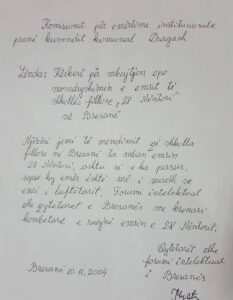 Komisionit për emërtime institucionale
pranë kuvendit komunal Dragash
Lënda: Kërkesë për mbajtjen apo
mosndryshimin e emrit të
shkollës fillore "28 Nëntori"
në Bresanë
Njëzëri jemi të mendimit që shkolla
fillore në Bresanë ta mban emrin
28 Nëntori, ashtu si e ka pasur,
sepse ky emër është më i madh se
emri i luftëtarit. Forumi intelektual
dhe qytetarët e Bresanës me krenari
kombëtare e ruajnë emrin e 28 Nëntorit.
Qytetarët dhe
forumi intelektual
i Bresanës
Bresanë 10.11.2004